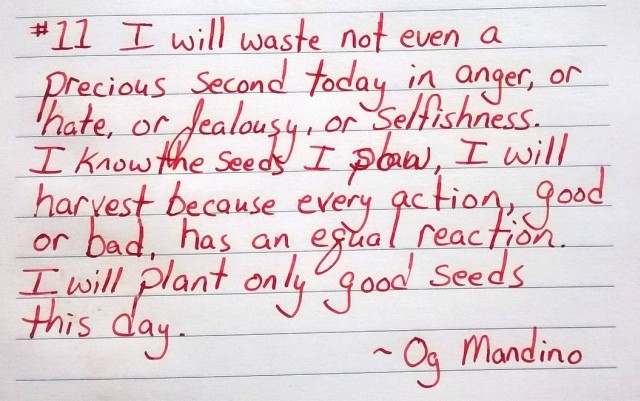 #11 I will waste not even a
precious second today in anger, or
hate, or jealousy, or selfishness.
I know the seeds I I will
harvest because every action, good
or bad, has an equal reaction.
I will plant only good seeds
this day.
~ Og Mandino